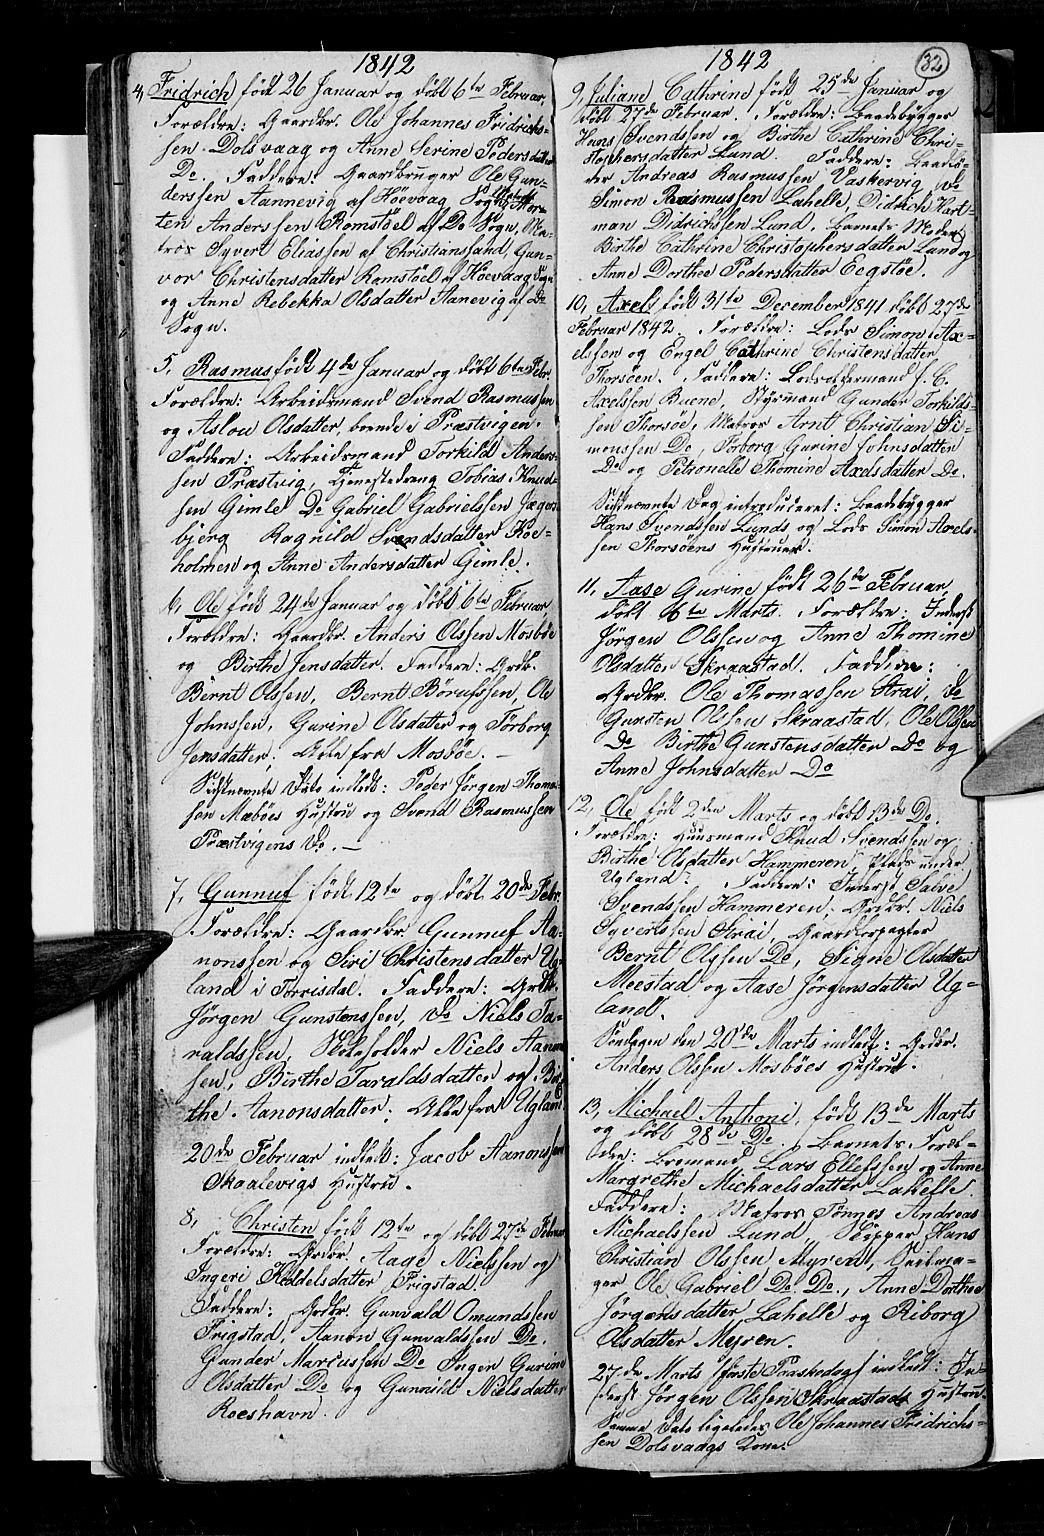 1842
4, Fridrich født 26 Januar og døbt 6te Februar,
Forældre: Gaardbr. Ole Johannes Fridrichs-
sen Dolsvaag og Anne Serine Pedersdatter
Do. Faddere: Gaardbruger Ole Gun-
derssen Aannevig af Höevaag Sogn,
ten Anderssen Romstöel af Do Sogn, Ma-
tros Syvert Eliassen af Christianssand, Gun-
vor Christensdatter Ramstöel af Höevaag Sogn
og Anne Rebekka Olsdatter Aanevig af Do
Sogn.
5, Rasmus født 4de Januar og döbt 6te Febr
Forældre: Arbeidsmand Svend Rasmussen
og Aslou Olsdatter, boende i Præstvigen.
Faddere: Arbeidsmand Torkild Anders-
sen Præstvig, Tjenestedreng Tobias Knud-
sen Gimle Do Gabriel Gabrielssen Jægers
bjerg Ragnild Svendsdatter Koe-
holmen og Anne Andersdatter Gimle.
6, Ole født 24de Januar og döbt 6te Februar
Forældre: Gaardbr. Anders Olssen Mosböe
og Birthe Jensdatter. Faddere: Grdbr.
Bernt Olssen, Bernt Börufssen, Ole
Johnssen, Gurine Olsdatter og Torborg
Jensdatter. Alle fra Mosböe. —
Sidstnævnte Dato indledt: Peder Jörgen Thoma-
sen Mæböes Hustru og Svend Rasmussen
Præstvigens Do. —
7, Gunnuf født 12te og döbt 20de Febr.
Forældre: Gaardbr. Gunnuf Aa-
nonssen og Siri Christensdatter Ug-
land i Torrisdal. Faddere: Grdbr.
Jörgen Gunstenssen, Do Niels Ta-
raldssen, Skoleholder Niels Aanon-
sen, Birthe Taraldsdatter og Bir-
the Aanonsdatter. Alle fra Ugland.
20de Februar indledt: Jacob Aanonssen
Skaalevigs Hustru.
8, Christen født 12te og döbt 27de Februar
Forældre: Grdbr. Aage Nielssen og
Ingeri Kiddelsdatter Frigstad.
Faddere: Grdbr. Gunvald Omundssen
Frigstad, Aanon Gunvaldssen Do.
Gunder Marcussen Do Inger Gurine
Olsdatter Do og Gunnild Nielsdatter
Roeshavn.
1842
32
9, Juliane Cathrine født 25de Januar og
döbt 27de Februar. Forældre: Baadebygger
Hans Svendssen og Birthe Cathrine Chri-
stophersdatter Lund. Faddere:
Andreas Rasmussen Vaskervig, Do
Simon Rasmussen Lahelle, Didrich Hart-
man Didrichssen Lund, Barnets Moder
Birthe Cathrine Christophersdatter Lund og
Anne Dorthee Pedersdatter Eegstöe.
10, Axel født 31te December 1841 döbt 27de
Februar 1842. Forældre: Lods Simon Ax-
elssen og Engel Cathrine Christensdatter
Thorsöen. Faddere: Lodsoldermand J. C.
Axelssen Buene, Styrmand Gunder Torkilds-
sen Thorsöe, Matros Arnt Christian Si-
monssen Do, Torborg Gurine Johnsdatter
Do og Petronelle Thomine Axelsdatter Do.
Sidstnævnte Dag introduceret: Baadebygger
Hans Svendssen Lunds og Lods Simon Axels-
sen Thorsöens Hustruer.
11, Aase Gurine født 26de Februar,
döbt 6te Marts. Forældre: Inderst
Jörgen Olssen og Anne Thomine
Olsdatter Skraastad. Faddere:
Grdbr. Ole Thomassen Strai, Do
Gunsten Olssen Skraastad, Ole Olssen
Do Birthe Gunstensdatter Do og
Anne Johnsdatter Do
12, Ole født 2den Marts og döbt 13de Do.
Forældre: Huusmand Knud Svendssen og
Birthe Olsdatter Hammeren, Plads under
Ugland. Faddere: Inderst Salve
Svendssen Hammeren, Grdbr. Niels
Syvertssen Strai, Gaardforpagter
Bernt Olssen Do, Signe Olsdatter
Meestad og Aase Jörgensdatter Ug-
land.
Söndagen den 20de Marts indledt: Grdbr.
Anders Olssen Mosböes Hustru.
13, Michael Anthoni, født 13de Marts
og döbt 28de Do. Barnets Foræl-
dre: Bremand Lars Ellefssen og Anne
Margrethe Michaelsdatter Lahelle.
Faddere: Matros Tönnes Andreas
Michaelssen Lund, Skipper Hans
Christian Olssen Myren, Seilma-
ger Ole Gabriel Do Do., Anne Dorthee
Jörgensdatter Lahelle og Riborg
Olsdatter Myren.
27de Marts første Paaskedag indledt: In-
derst Jörgen Olssen Skraastads Hustru.
Samme Dato ligeledes Ole Johannes Fridrichs-
sen Dolsvaags Kone.